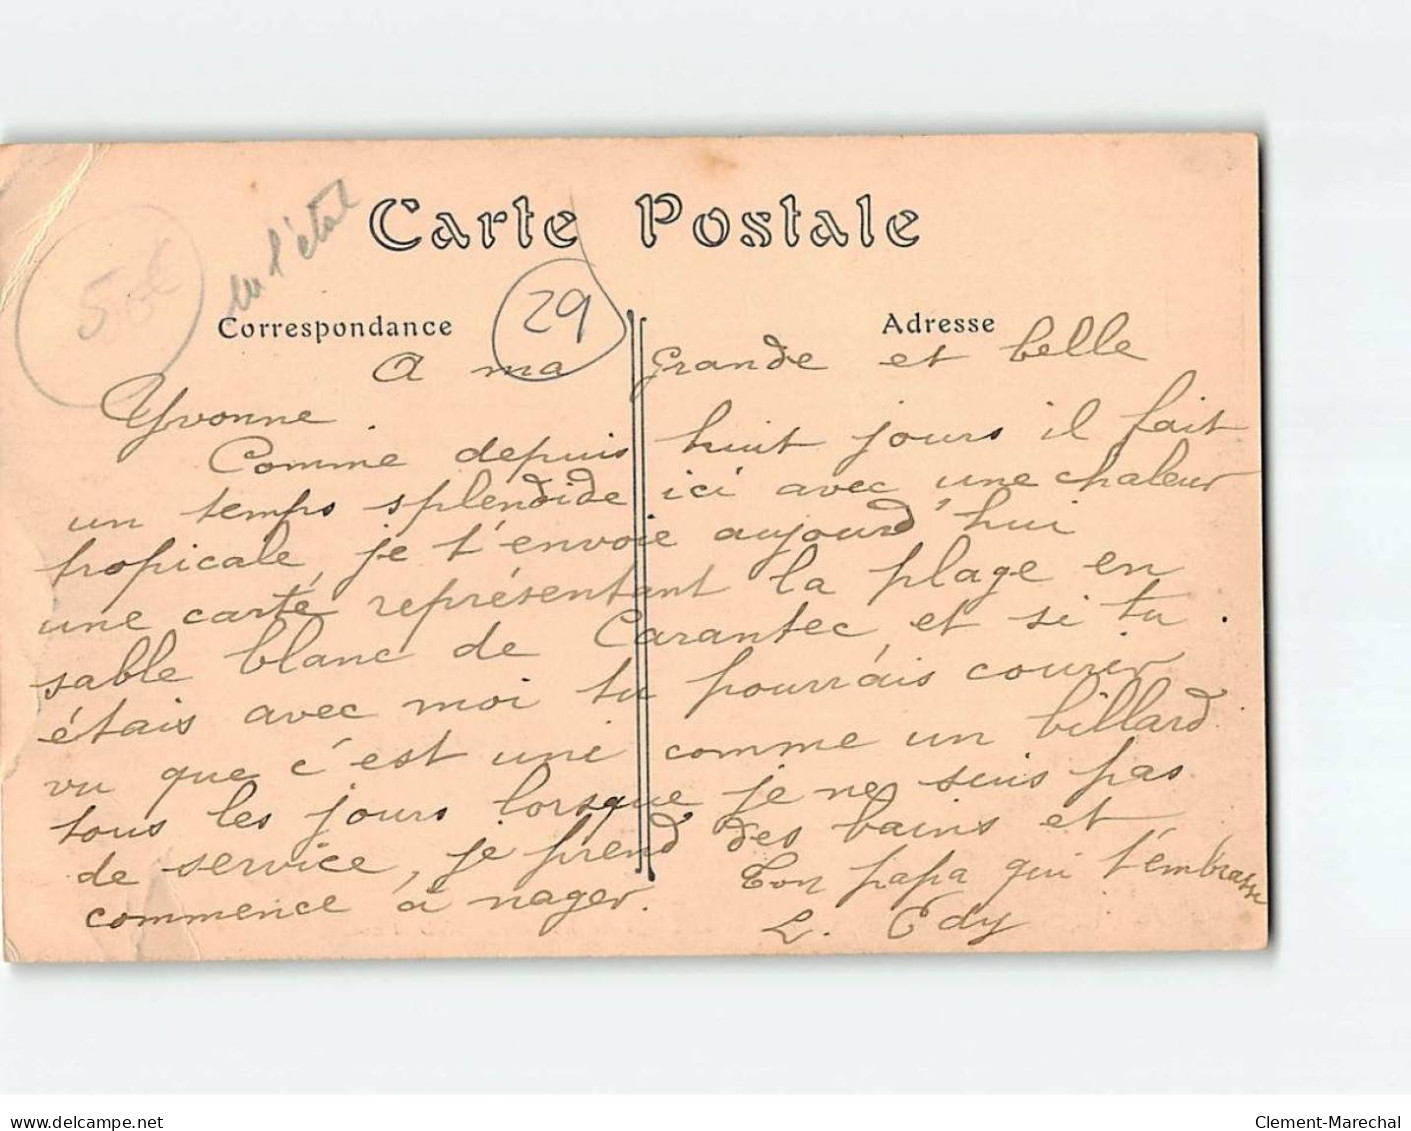 Carte Postale
50€
en l'état
29
Correspondance
Adresse
A ma grande et belle
Yvonne
Comme depuis huit jours il fait
un temps splendide ici avec une chaleur
tropicale, je t'envoie aujourd'hui
une carte représentant la plage en
sable blanc de Carantec et si tu
étais avec moi tu pourrais courir
vu que c'est uni comme un billard
tous les jours lorsque je ne suis pas
de service, je prend des bains et
commence à nager.
Ton papa qui t'embrasse
L. Edy
delcampe.net
Clement-Marechal